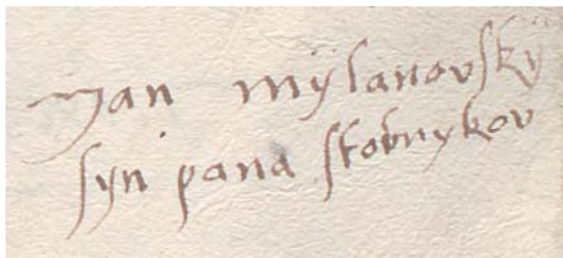 Jan mÿlanovskÿ
syn pana stolnykov